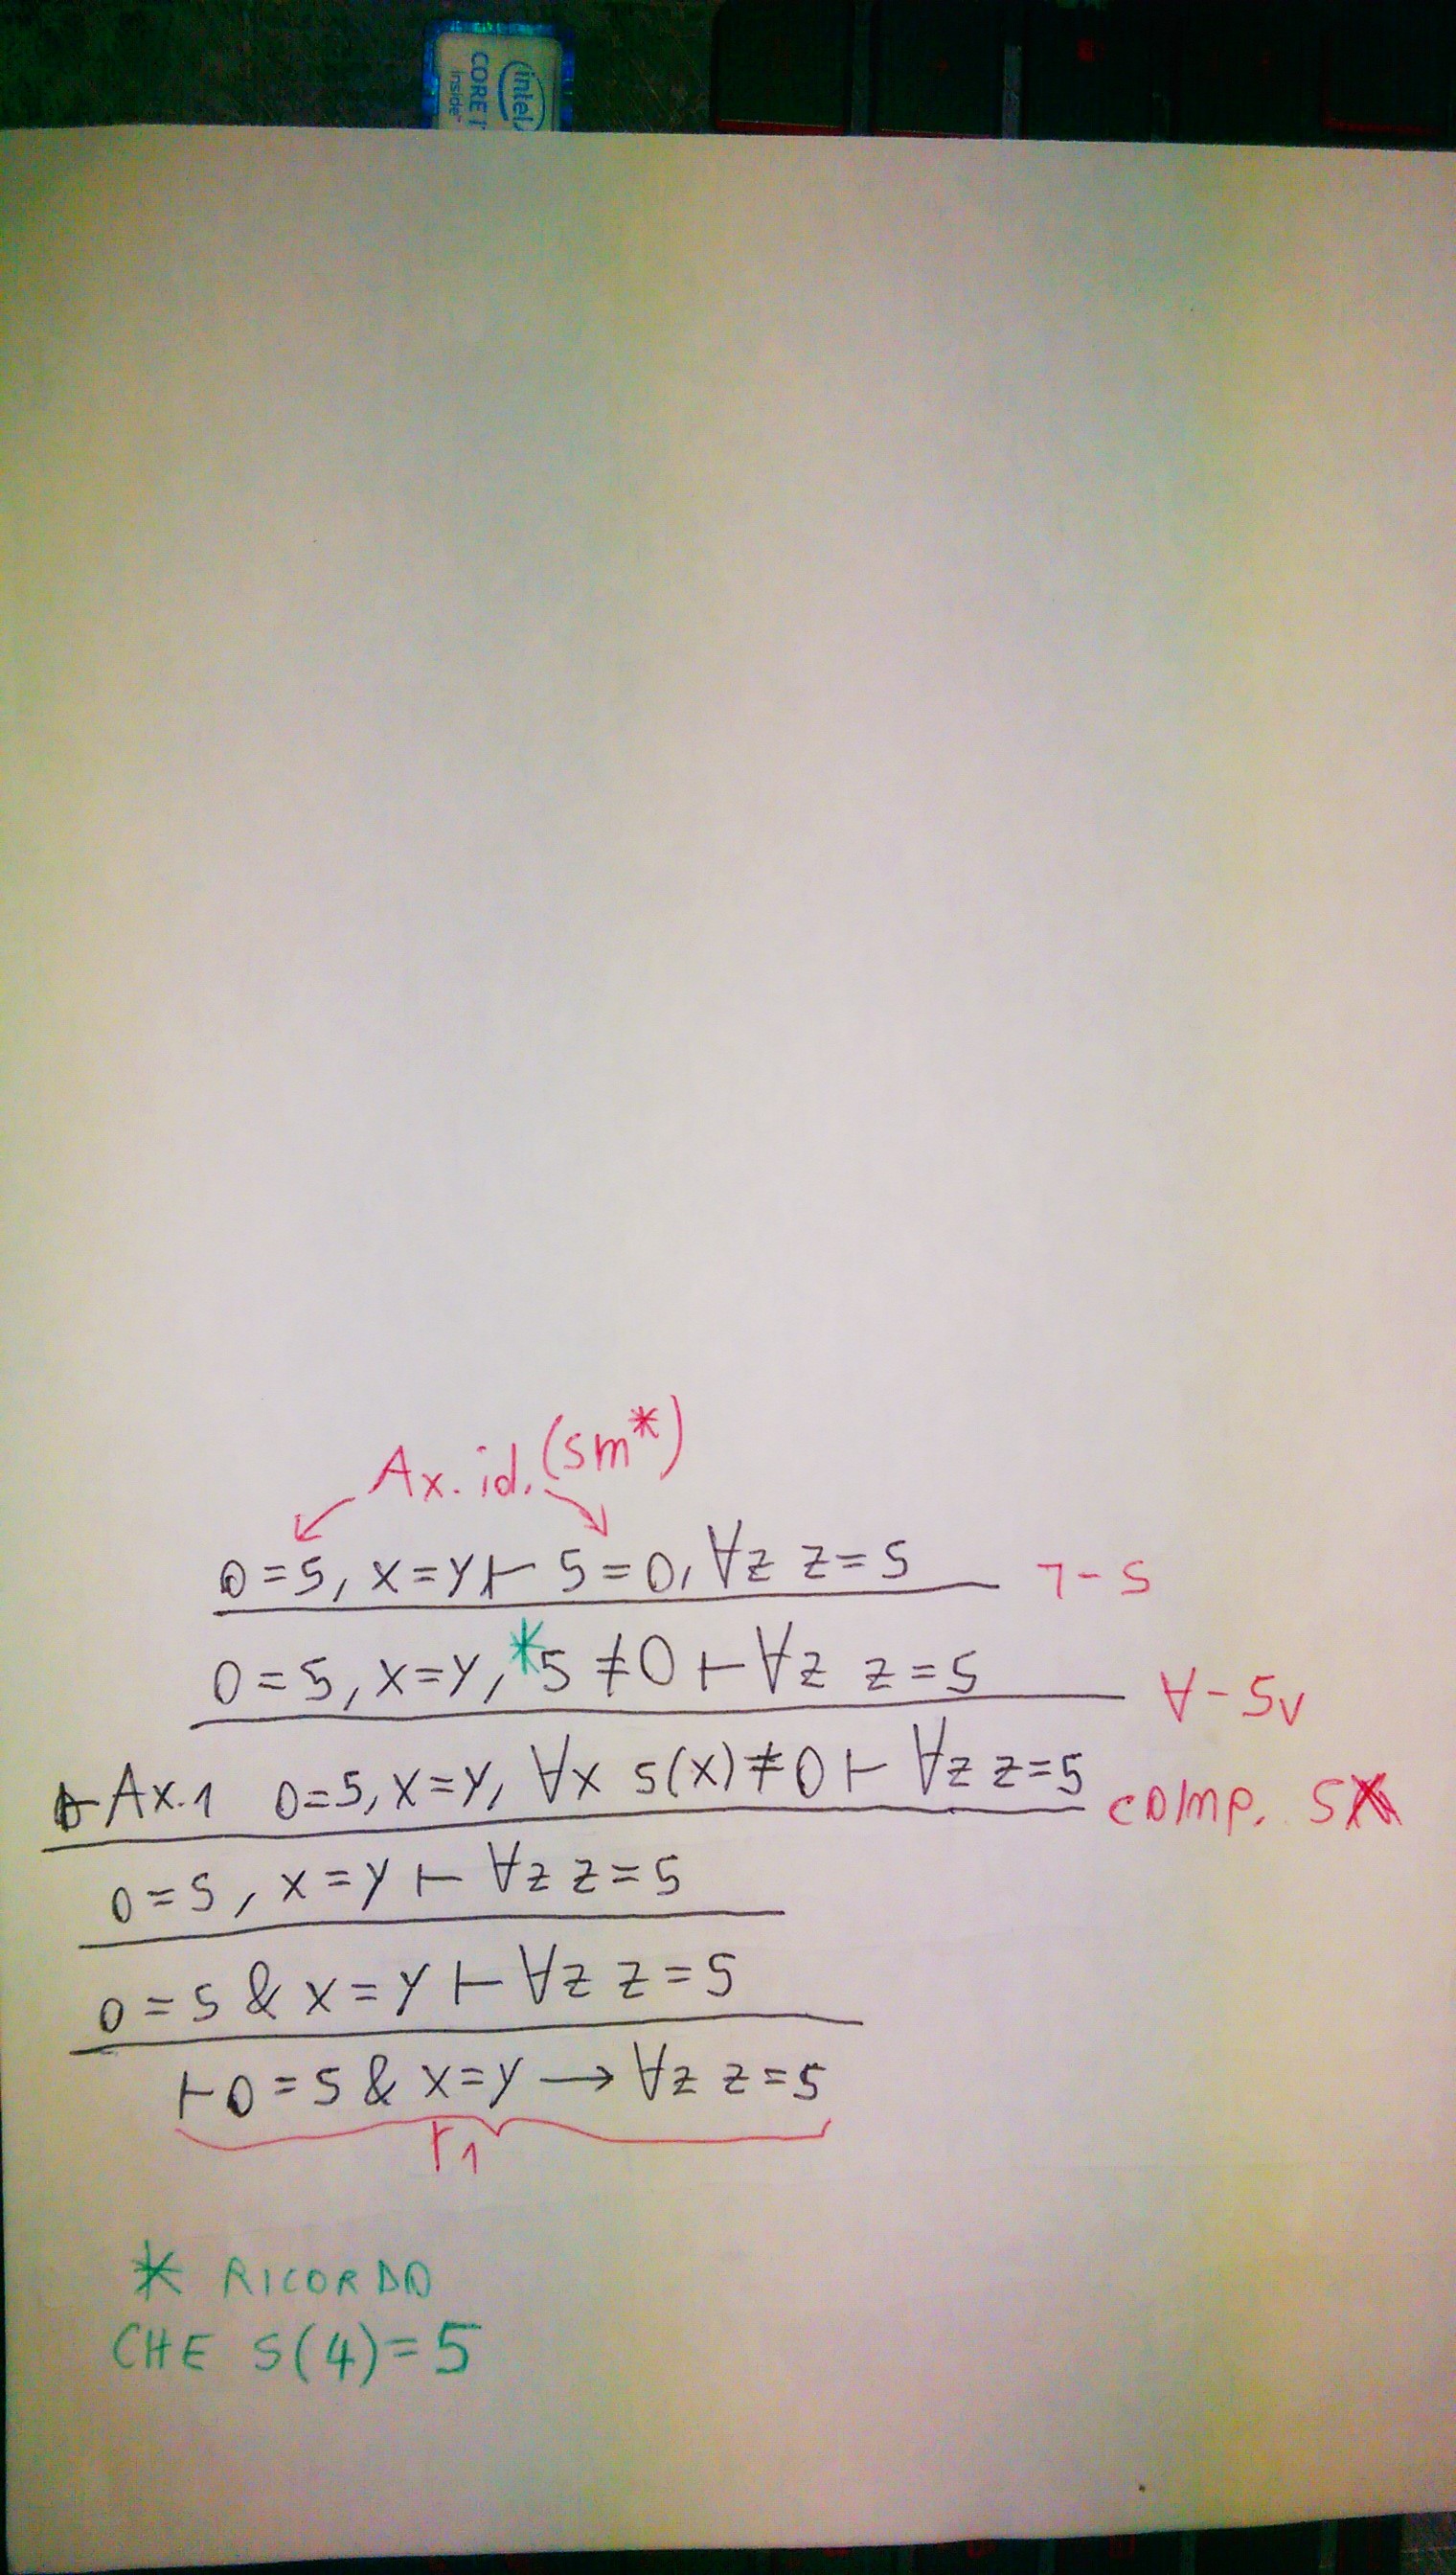 intel
CORE i
inside™
Ax. id. (sm*)
0=5, x=y ⊢ 5=0, ∀z z=5 ¬-S
0=5, x=y, *5≠0 ⊢ ∀z z=5 ∀-Sv
⊢Ax.1 0=5, x=y, ∀x s(x)≠0 ⊢ ∀z z=5 comp. sx
0=5, x=y ⊢ ∀z z=5
0=5 & x=y ⊢ ∀z z=5
⊢ 0=5 & x=y → ∀z z=5
r1
* RICORDO
CHE s(4)=5